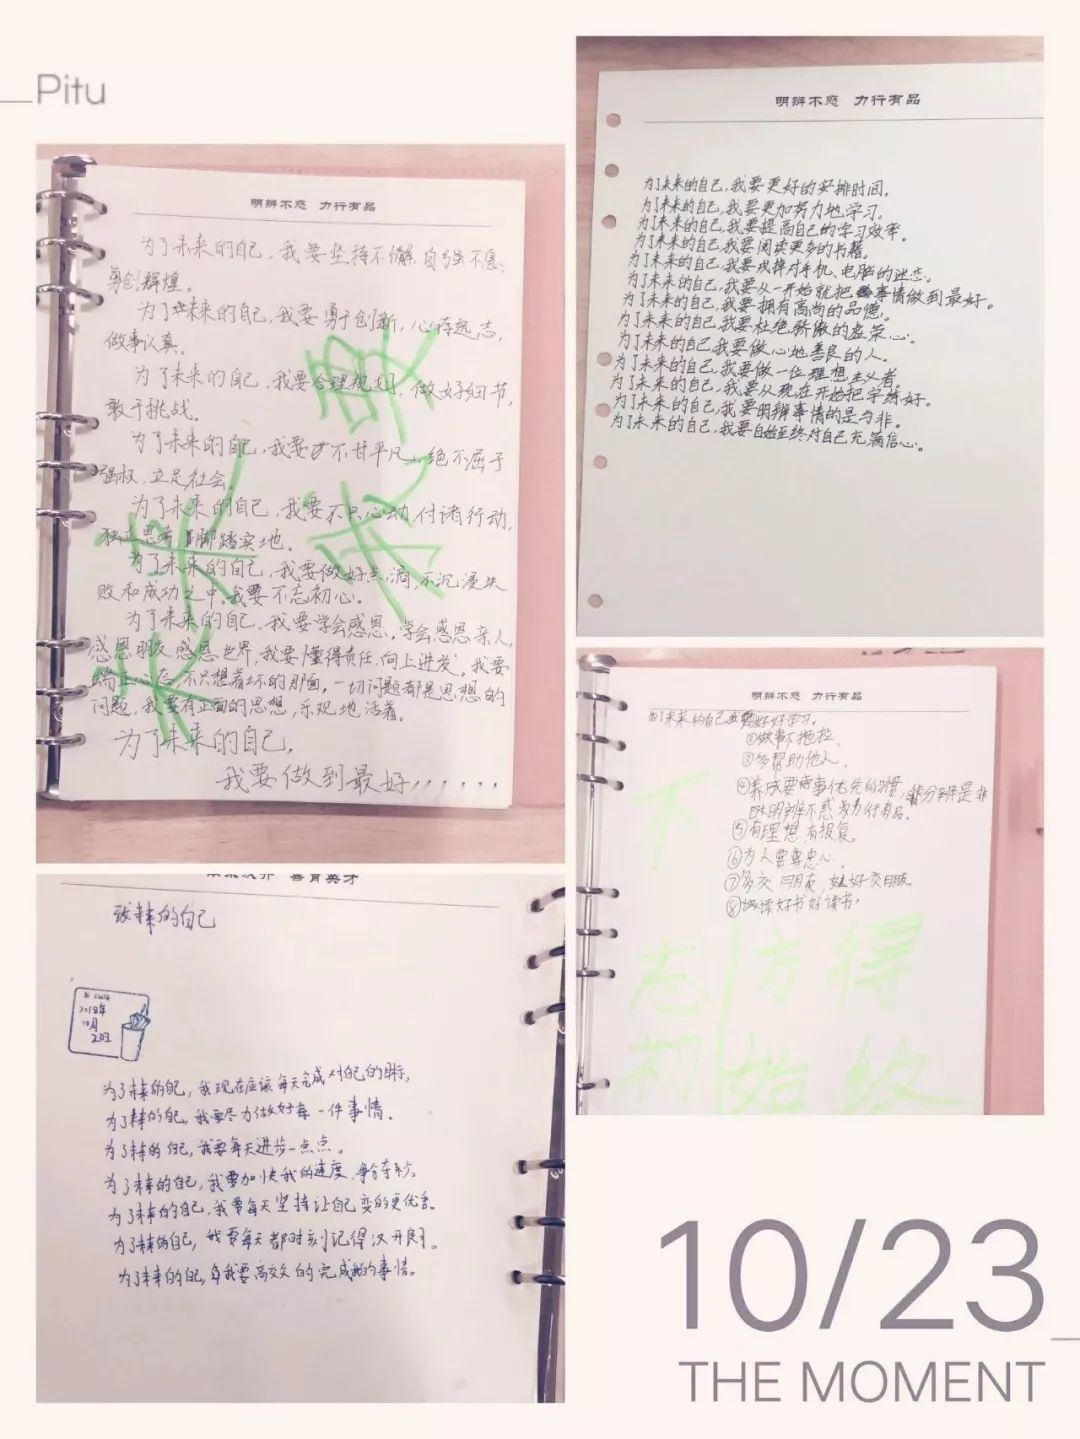 Pitu
明辨不惑 力行有品
为了未来的自己,我要坚持不懈,自强不息,
勇创辉煌。
为了未来的自己,我要勇于创新,心存远志,
做事认真。
为了未来的自己,我要合理规划,做好细节,
敢于挑战。
为了未来的自己,我要不甘平凡,绝不屈于
强权,立足社会。
为了未来的自己,我要不只心动,付诸行动,
独立思考,脚踏实地。
为了未来的自己,我要做好点滴,不沉浸失
败和成功之中。我要不忘初心。
为了未来的自己,我要学会感恩,学会感恩亲人,
感恩朋友,感恩世界,我要懂得责任,向上进发。我要
端正心态,不只想着坏的那面,一切问题都是思想的
问题,我要有正面的思想,乐观地活着。
为了未来的自己,
我要做到最好......
未来
明辨不惑 力行有品
为了未来的自己,我要更好的安排时间。
为了未来的自己,我要更加努力地学习。
为了未来的自己,我要提高自己的学习效率。
为了未来的自己,我要阅读更多的书籍。
为了未来的自己,我要戒掉对手机、电脑的迷恋。
为了未来的自己,我要从一开始就把事情做到最好。
为了未来的自己,我要拥有高尚的品德。
为了未来的自己,我要杜绝骄傲的虚荣心。
为了未来的自己,我要做心地善良的人。
为了未来的自己,我要做一位理想主义者。
为了未来的自己,我要从现在开始把字练好。
为了未来的自己,我要明辨事情的是与非。
为了未来的自己,我要自始至终对自己充满信心。
明辨不惑 力行有品
为了未来的自己我要好好学习。
②做事不拖拉。
③多帮助他人。
④养成要事优先的习惯,分辨是非
明辨不惑 力行有品。
⑤有理想,有报复。
⑥为人要忠心。
⑦多交朋友,好交朋友。
⑧读好书好读书
不忘初
方得
始终
善育英才
的自己
2018年
10月
为了未来的自己,我现在应该每天完成对自己的
为了未来的自己,我要尽力做好每一件事情。
为了未来的自己,我要每天进步一点点。
为了未来的自己,我要加快我的速度,争分夺秒。
为了未来的自己,我要每天坚持让自己变的更优秀。
为了未来的自己,我要每天都时刻记得汉开
为了未来的自己,我要高效的完成我的事情。
10/23
THE MOMENT